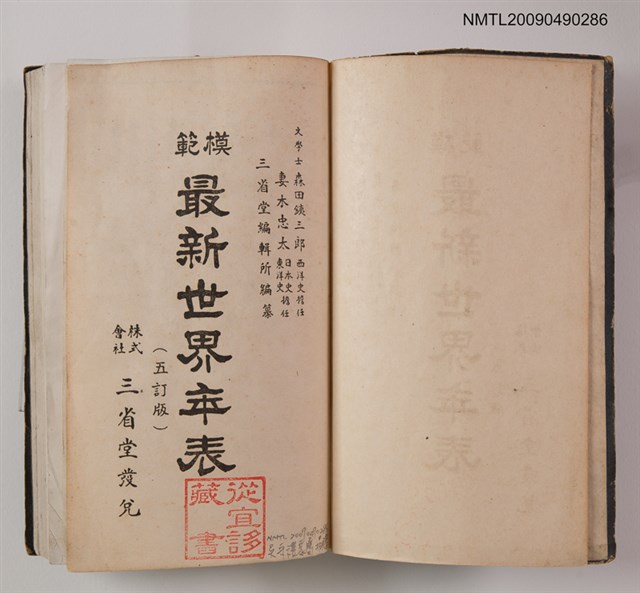 NMTL20090490286
文學士 森田鐵三郎 西洋史擔任
妻木忠太 日本史東洋史擔任
三省堂編輯所編纂
模範
最新世界年表
（五訂版）
株式會社 三省堂發兌
從宜誃藏書